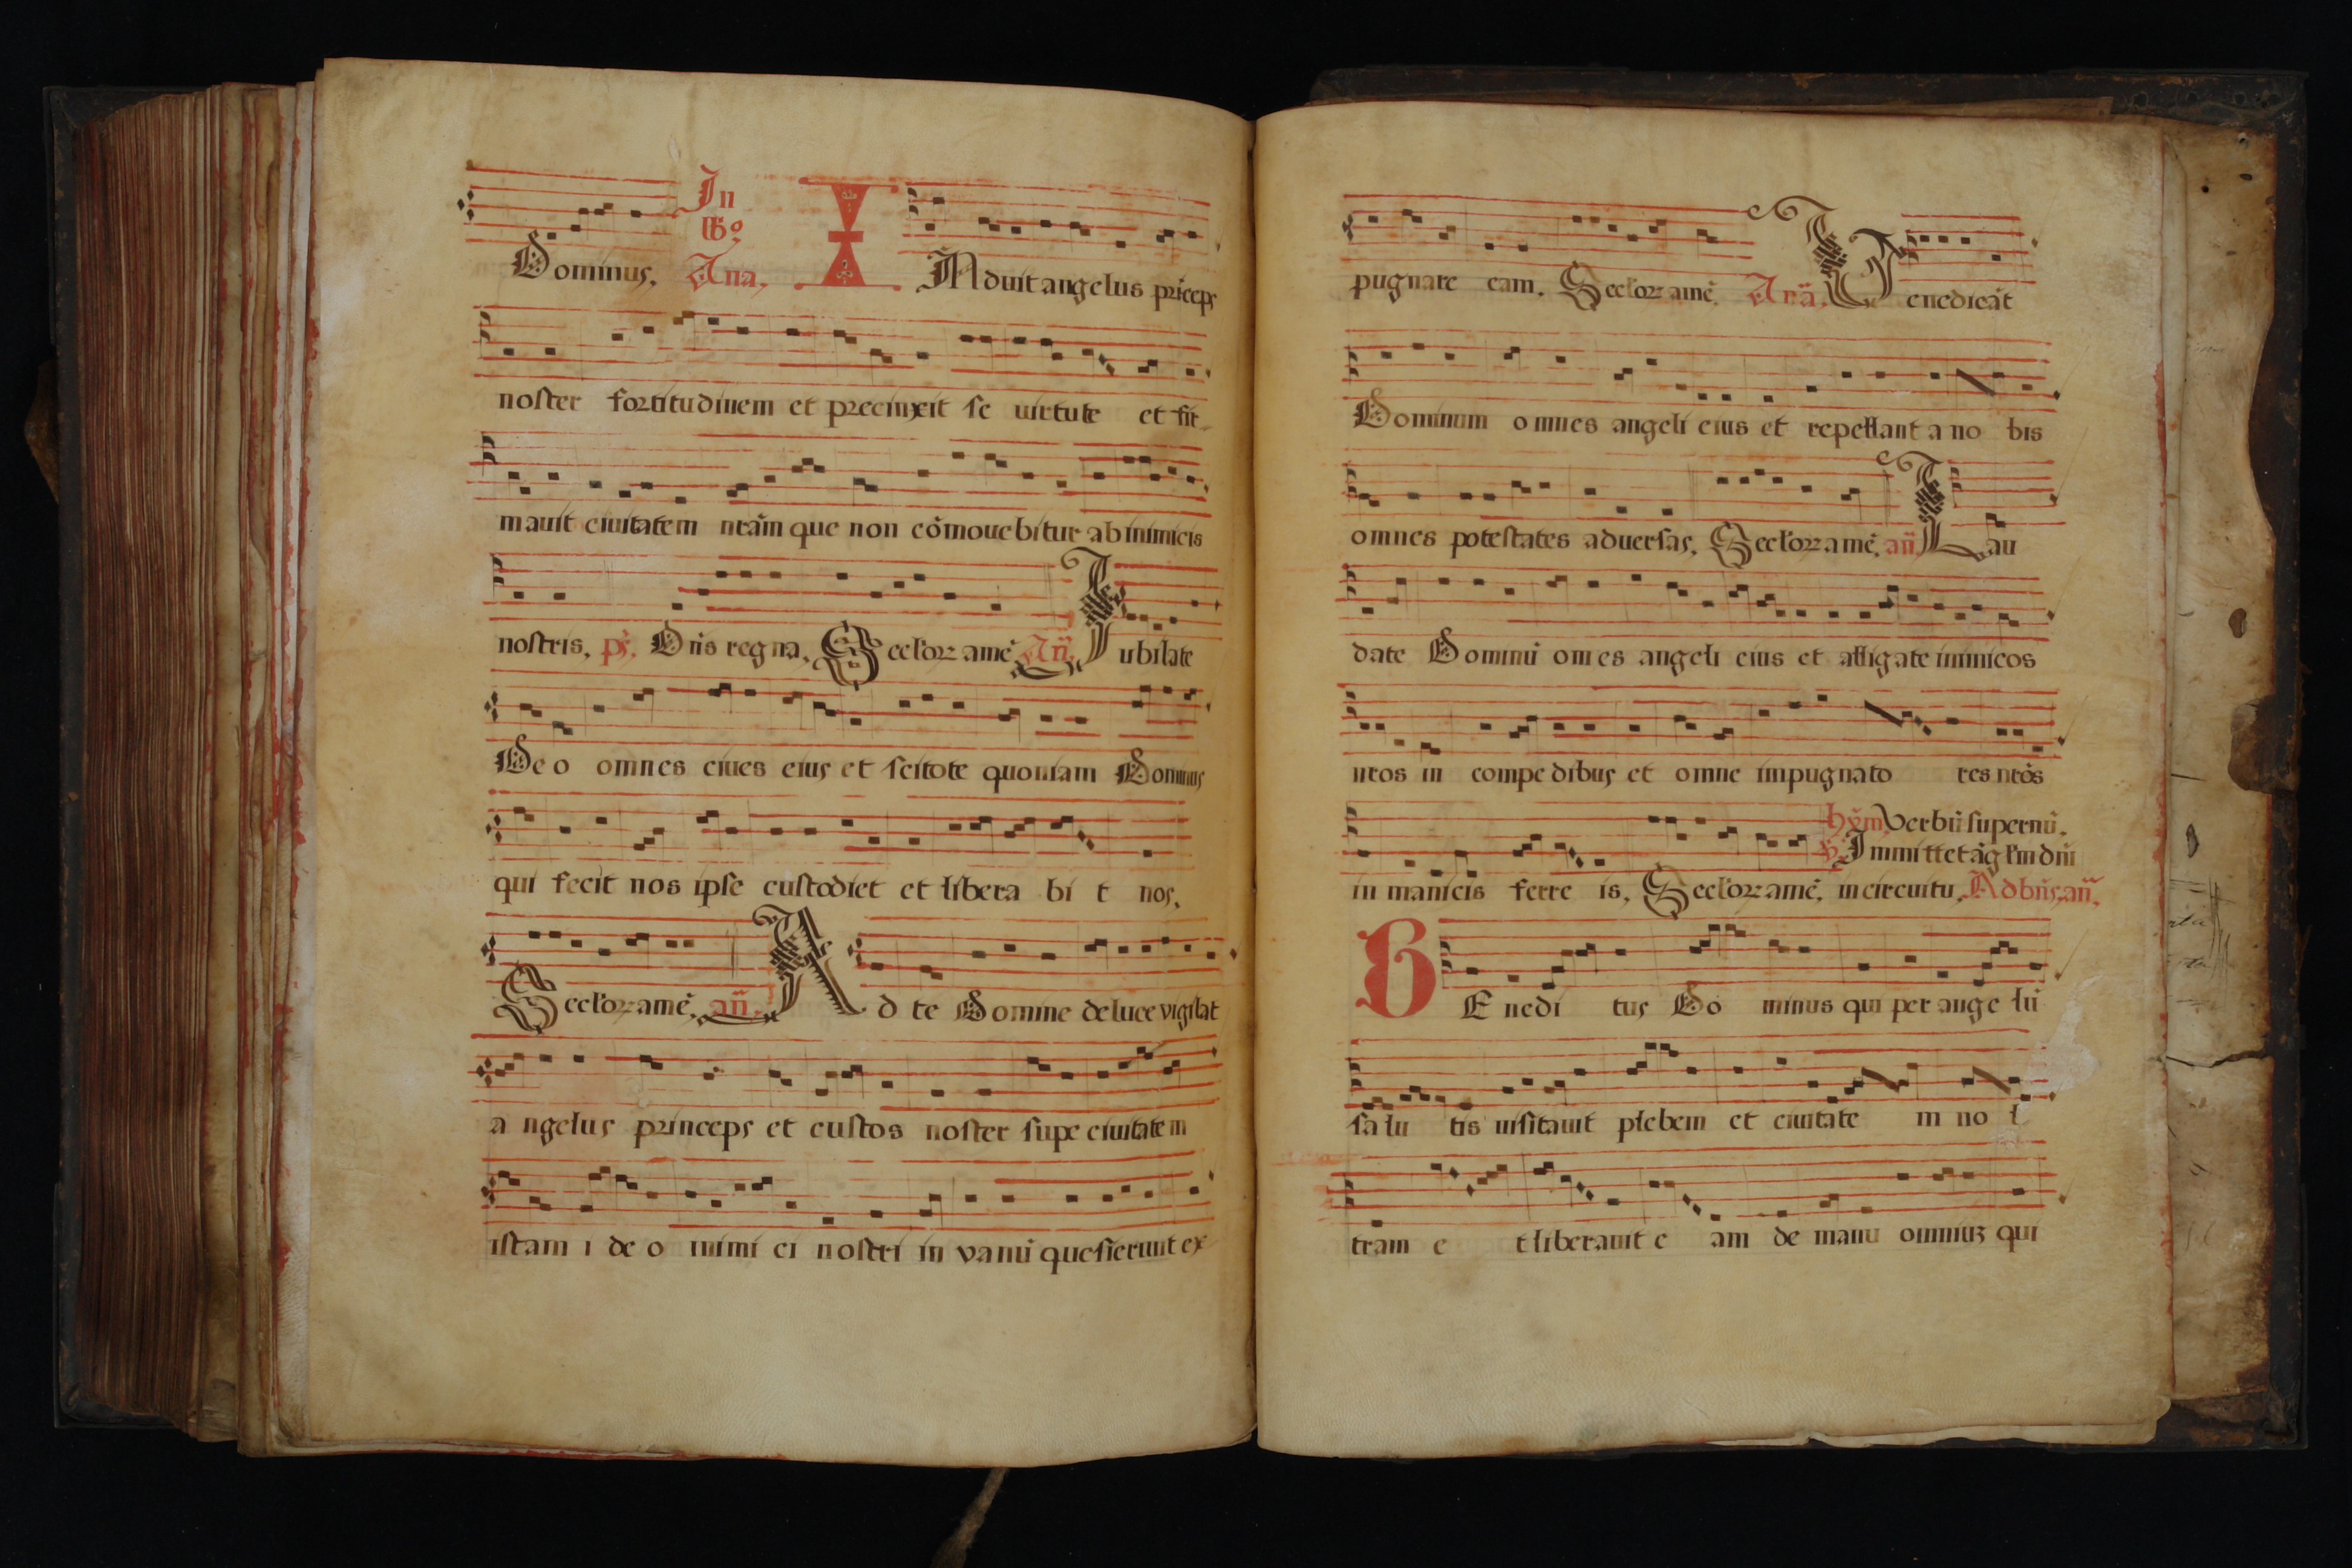 In
lb9
Dominus. Ana. INduit angelus pріceps
noster fortitudinem et precinxit se uirtute et fir-
mauit ciuitatem nrãm que non cõmouebitur ab inimicis
nostris. ps. Dñs regna. Seclorz amẽ. Añ. Iubilate
Deo omnes ciues eius et scitote quoniam Dominus
qui fecit nos ipse custodiet et libera bi t nos.
Seclorz amẽ. añ. Ad te Domine de luce vigilat
a ngelus princeps et custos noster supe ciuitatem
istam i de o inimi ci nostri in vanũ quesierunt ex
pugnare eam. Seclorz amẽ. Anã. Benedicãt
Dominum omnes angeli eius et repellant a no bis
omnes potestates aduersas. Seclorz amẽ. añ. Lau
date Dominũ om es angeli eius et alligate inimicos
nros in compedibus et omne impugnato res nrõs
in manicis ferre is. Seclorz amẽ.
hỹm. Verbũ supernũ.
v. Immittet ãglm dñi
in circuitu. Ad bñs. añ.
BEnedi tus Do minus qui per ange lũ
salu tis uisitauit plebem et ciuitate m no s
tram e t liberauit e am de manu omniuz qui